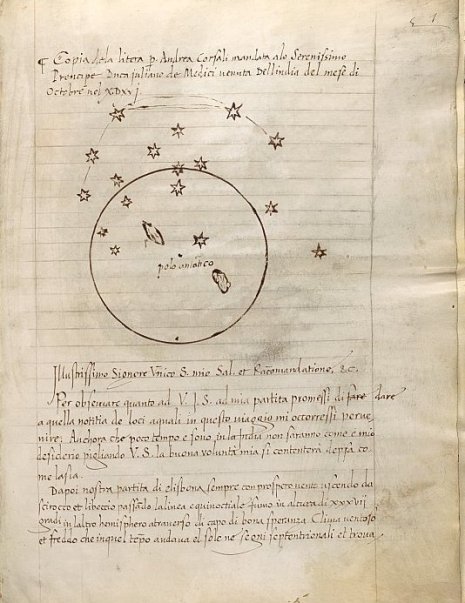 ¶ Copia de la litera p. Andrea Corsali mandata alo Serenissimo
Principe Duca Juliano de Medici venuta Dellindia del mese di
Octobre nel XDXVJ.
polo antàtico
Illustrissimo Signore Vnico S. mio Sal. et Racomandatione, &c.
Per observare quanto ad V. J. S. ad mia partita promessi di fare dare
a quella notitia de loci aquali in questo viaggio mi occorressi perve
nire; Anchora che poco tempo e sono in la India non saranno come e mio
desiderio pigliando V. S. la buona volunta mia si contenterà dessa co
me lasia.
Dapoi nostra partita di lisbona sempre con prospero vento uscendo da
scirocco et libeccio passado la linea equinoctiale fumo in altura di XXXVIJ
gradi in laltro hemisphero atraverso di capo di bona speranza Clima ventoso
et freddo che in quel tēpo andaua el sole ne segni septentrionali et troua